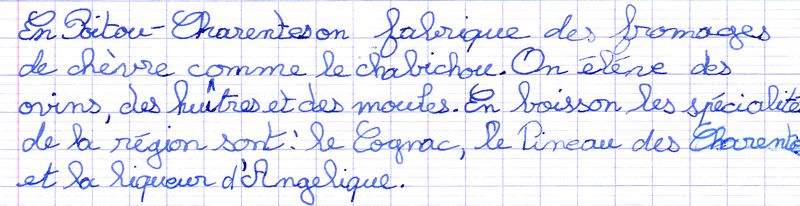 En Poitou-Charentes on fabrique des fromages
de chèvre comme le chabichou. On élève des
ovins, des huîtres et des moules. En boisson les spécialités
de la région sont : le Cognac, le Pineau des Charentes
et la liqueur d'Angelique.